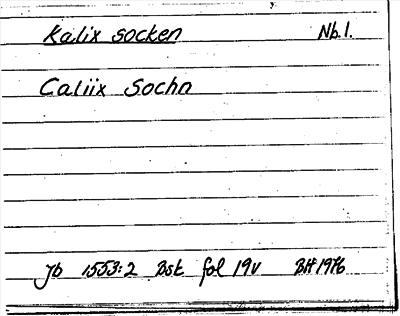 Kalix socken Nb.1.
Caliix Sochn
Jb 1553:2 Bst fol 19v BH 1976